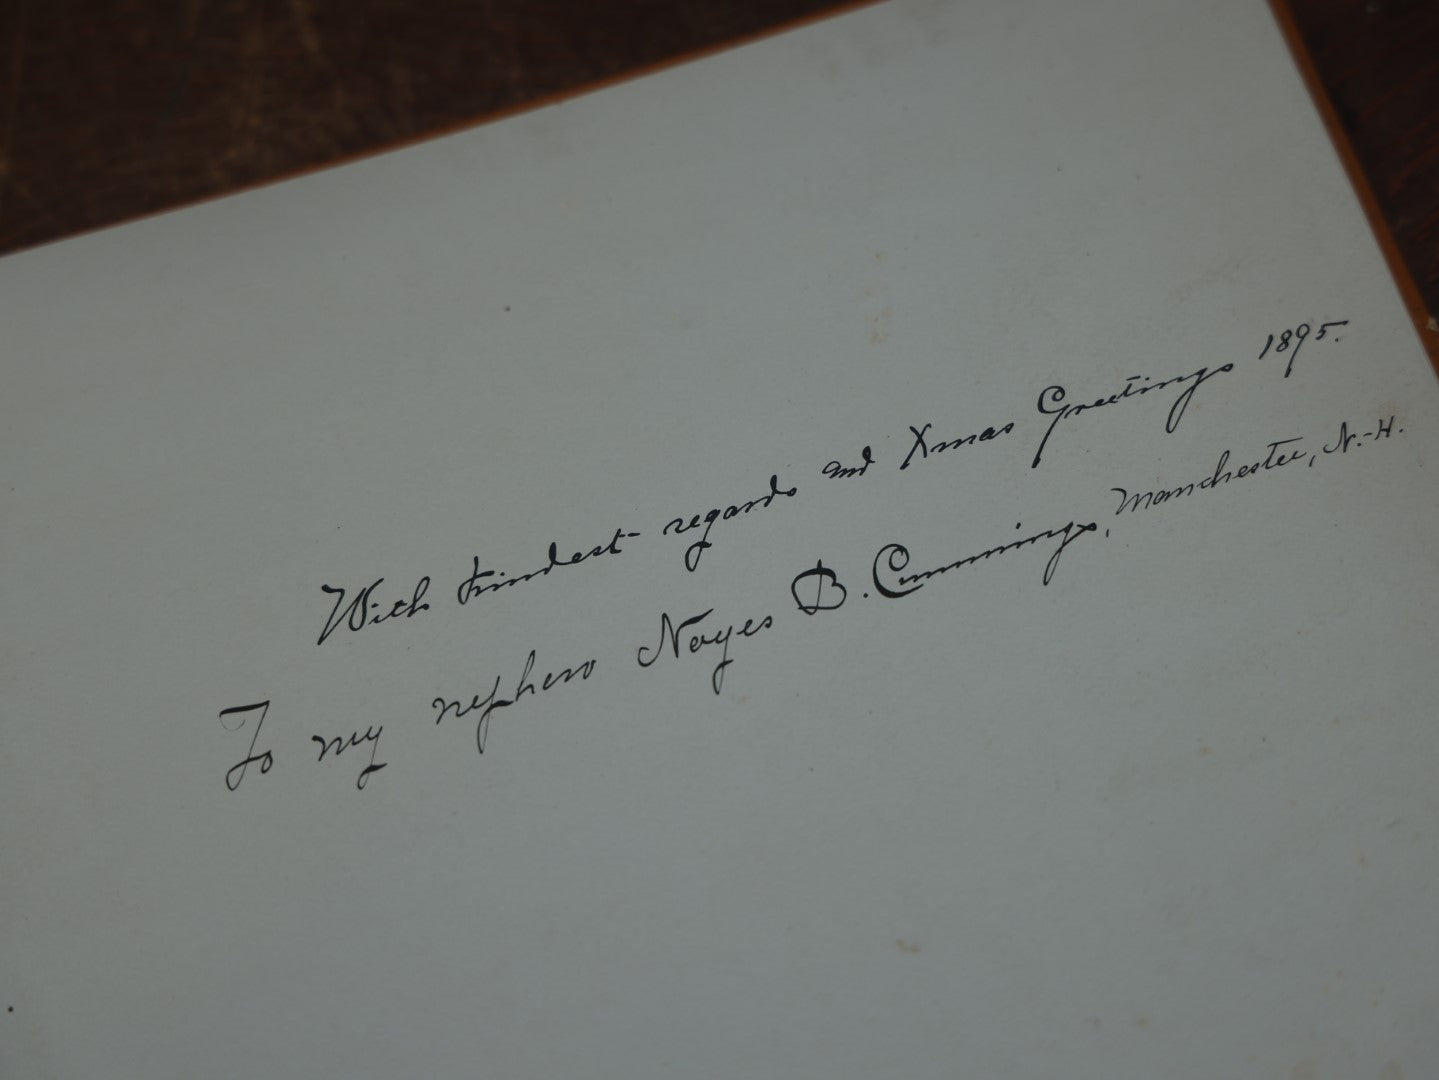 With kindest regards and Xmas Greetings 1895.
To my nephew Noyes B. Cummings, Manchester, N.-H.